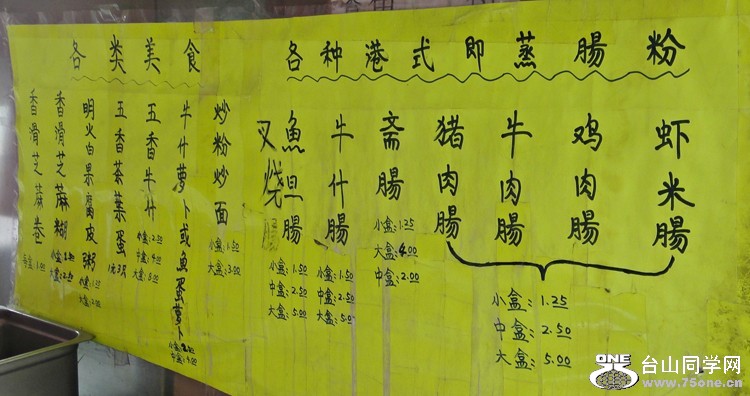 各种港式即蒸腸粉
虾米腸
鸡肉腸
牛肉腸
猪肉腸
小盒:1.25
中盒:2.50
大盒:5.00
斋腸
小盒:1.25
大盒:4.00
中盒:2.00
牛什腸
小盒:1.50
中盒:2.50
大盒:5.00
魚旦腸
小盒:1.50
中盒:2.50
大盒:5.00
叉燒腸
各类美食
炒粉炒面
小盒:1.50
大盒:3.00
牛什萝卜或魚蛋萝卜
小盒:2.00
中盒:4.00
五香牛什
小盒:2.00
中盒:4.00
大盒:6.00
五香茶葉蛋
明火白果腐皮粥
小盒:1.00
大盒:2.00
香滑芝麻糊
大盒:2.50
香滑芝麻卷
每盒:1.00
ONE
台山同学网
www.75one.com